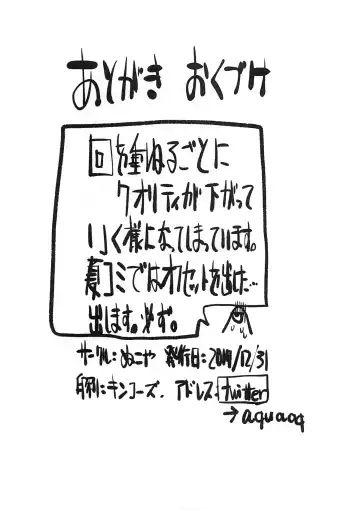 あとがき おくづけ
回を重ねるごとに
クオリティが下がって
いく様になってしまっています。
夏コミではオフセットを出た…
出します。必ず。
サークル:ぬこや 発行日:2011/12/31
印刷:キンコーズ. アドレス twitter
→aquaoq